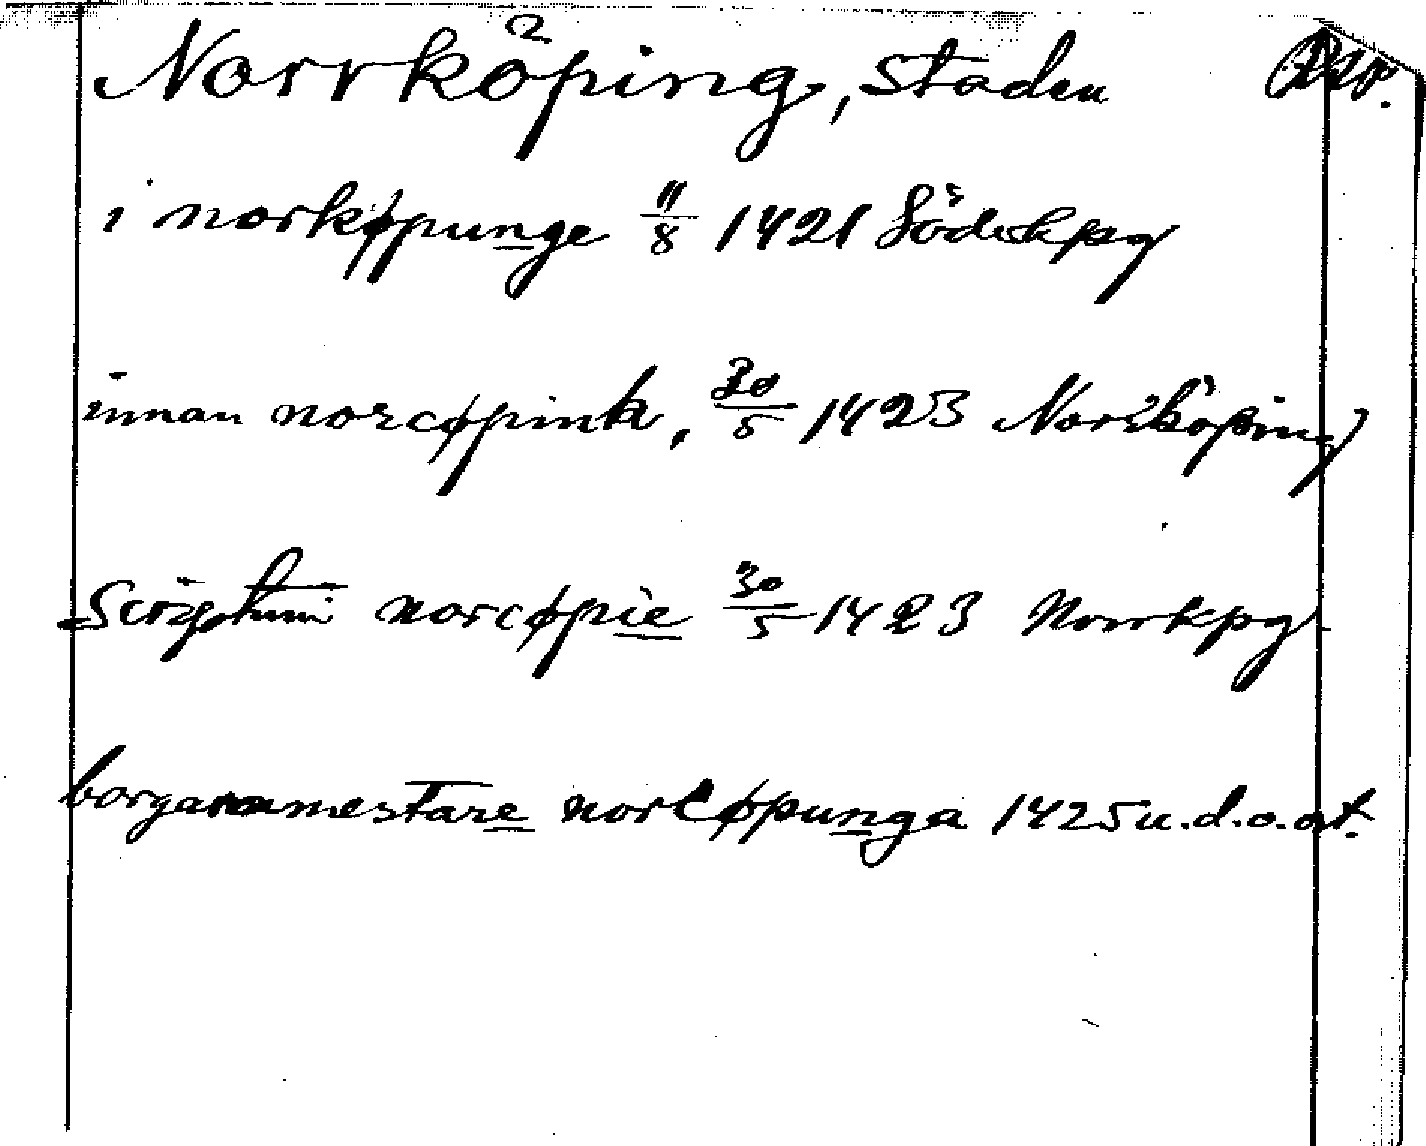 Norrköping, staden
i norkøpunge 11/8 1421 Söderkpg
innan norcøpink, 30/5 1423 Norrköping
Scriptum norcøpie 30/5 1423 Norrkpg
borgaramestare norcøpunga 1425 u.d.o.ot.